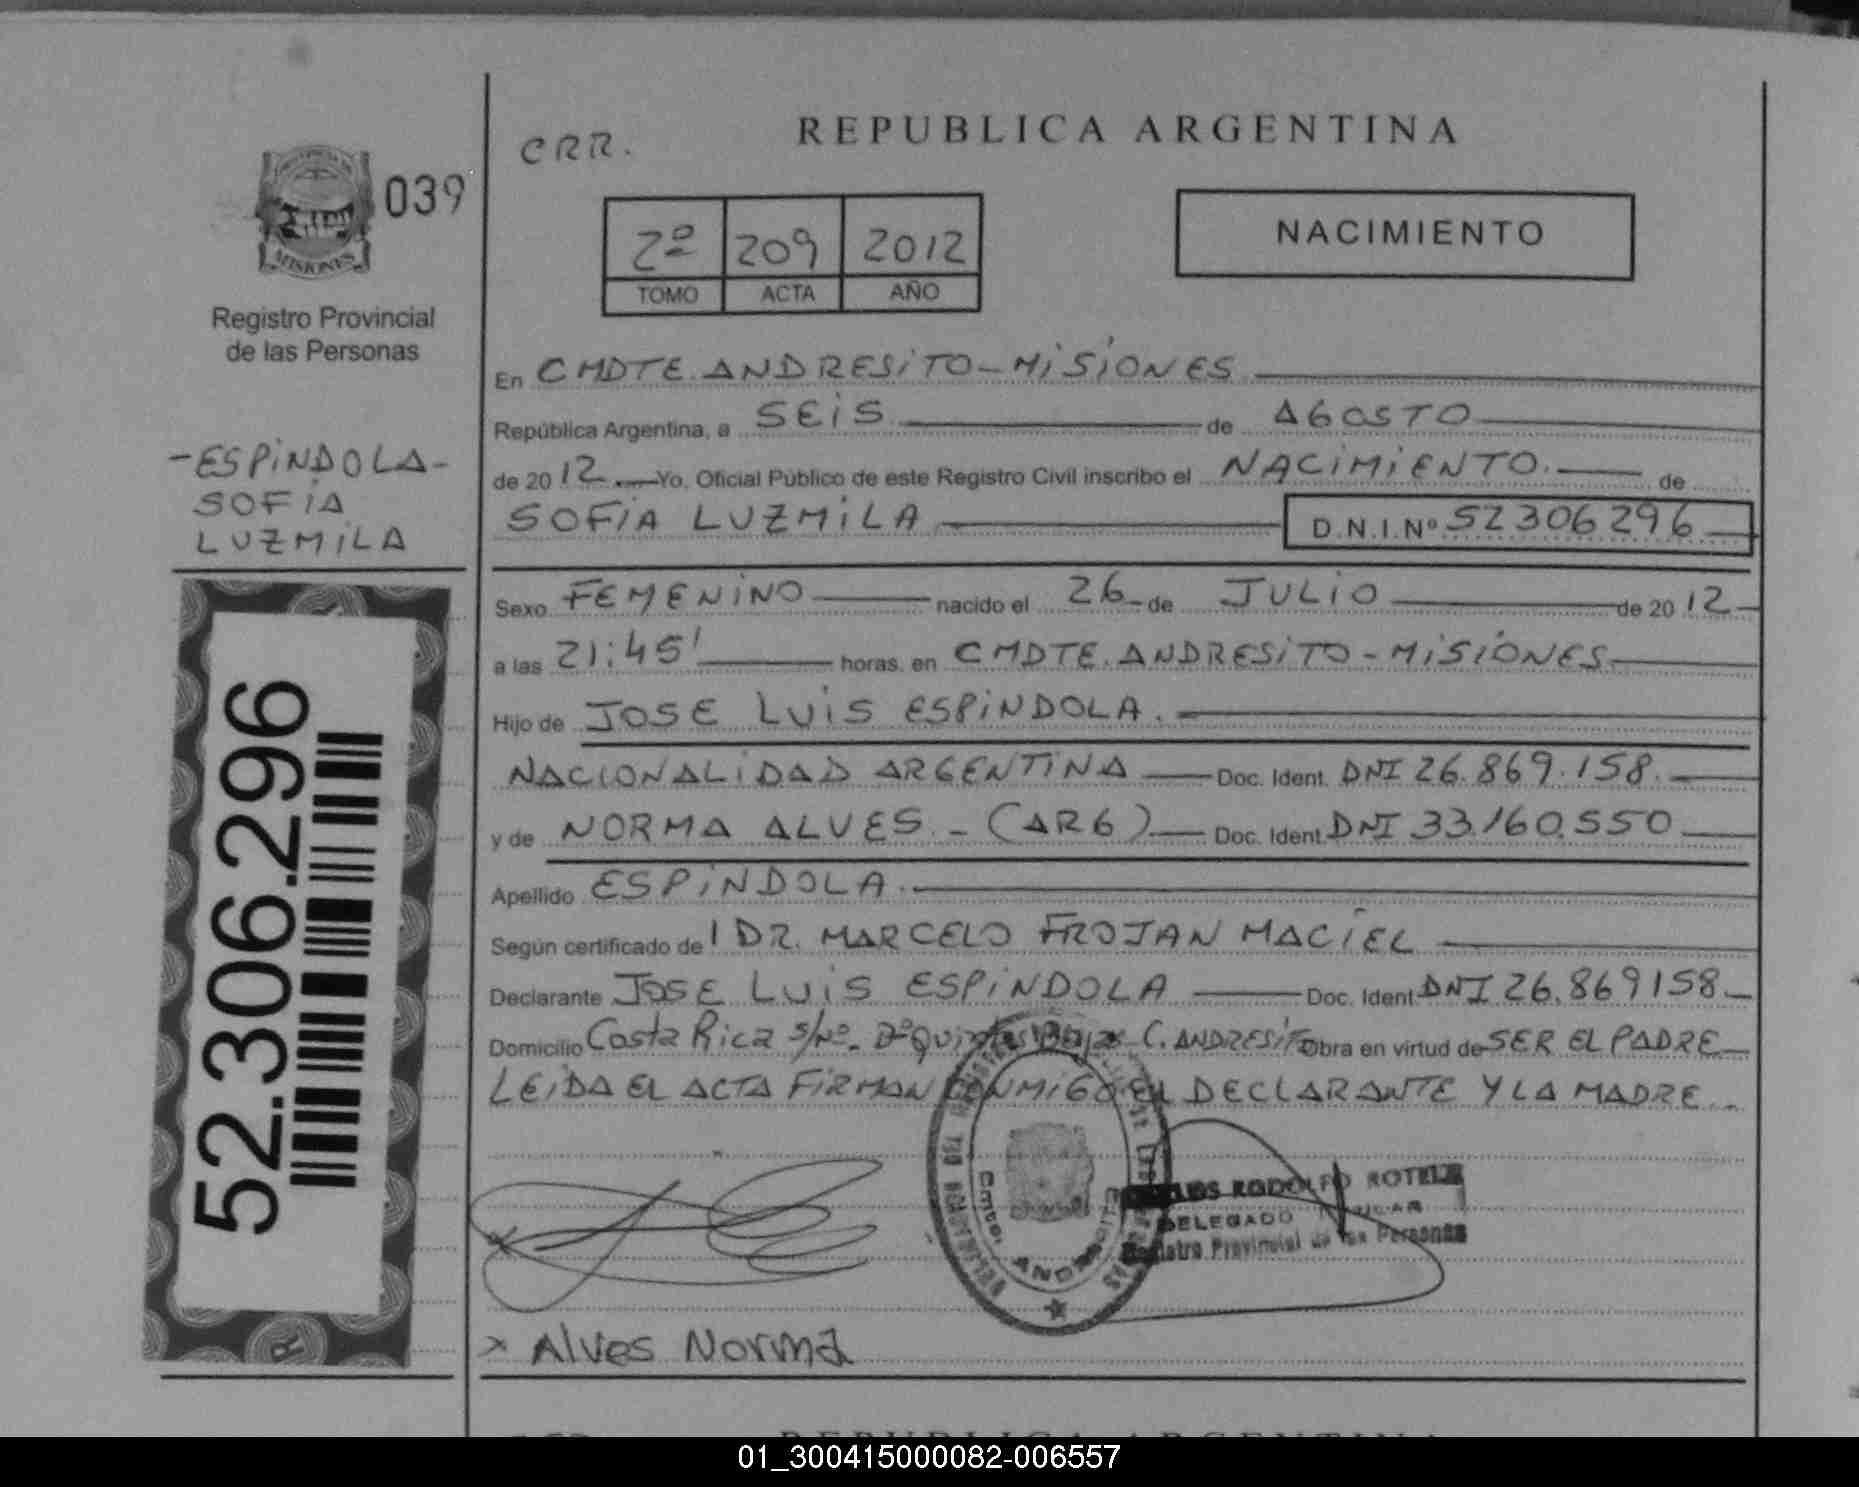 CRR.
REPUBLICA ARGENTINA
039
MISIONES
Registro Provincial
de las Personas
2º 209 2012
TOMO ACTA AÑO
NACIMIENTO
-ESPINDOLA-
SOFIA
LUZMILA
52.306.296
R
En CMDTE. ANDRESITO - MISIONES
República Argentina, a SEIS de AGOSTO
de 2012 Yo, Oficial Público de este Registro Civil inscribo el NACIMIENTO. de
SOFIA LUZMILA D.N.I.Nº 52306296
Sexo FEMENINO nacido el 26 de JULIO de 2012
a las 21:45' horas, en CMDTE. ANDRESITO - MISIONES
Hijo de JOSE LUIS ESPINDOLA.
NACIONALIDAD ARGENTINA Doc. Ident. DNI 26.869.158.
y de NORMA ALVES - (ARG) Doc. Ident. DNI 33.160.550
Apellido ESPINDOLA.
Según certificado de l DR. MARCELO FROJAN MACIEL
Declarante JOSE LUIS ESPINDOLA Doc. Ident. DNI 26.869158
Domicilio Costa Rica s/Nº- C. ANDRESITO Obra en virtud de SER EL PADRE
LEIDA EL ACTA FIRMAN CONMIGO EL DECLARANTE Y LA MADRE
Cmte. ANDRESITO
RODOLFO ROTELA
DELEGADO
Registro Provincial de las Personas
x Alves Norma
REPUBLICA ARGENTINA
01_300415000082-006557